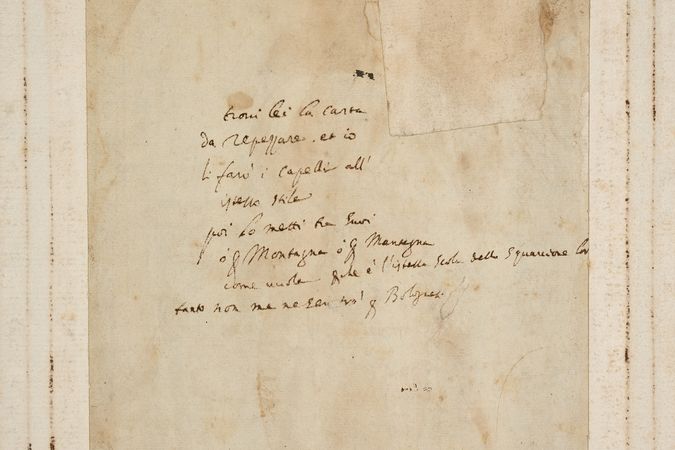 trovi lei la carta
da repezzare. et io
li farò i capelli all'
istesso stile
poi lo metti tra suoi
ò p Montagna ò p Mantegna
come vuole che è l'istessa scola dello Squarcione
tanto non ma ne p Bologna.